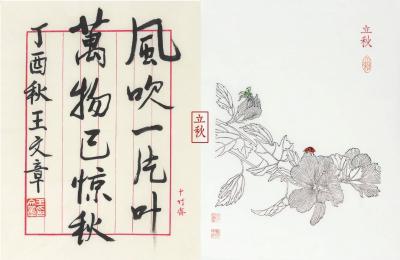 風吹一片叶
萬物已惊秋
丁酉秋王文章
十竹齋
立秋
立秋